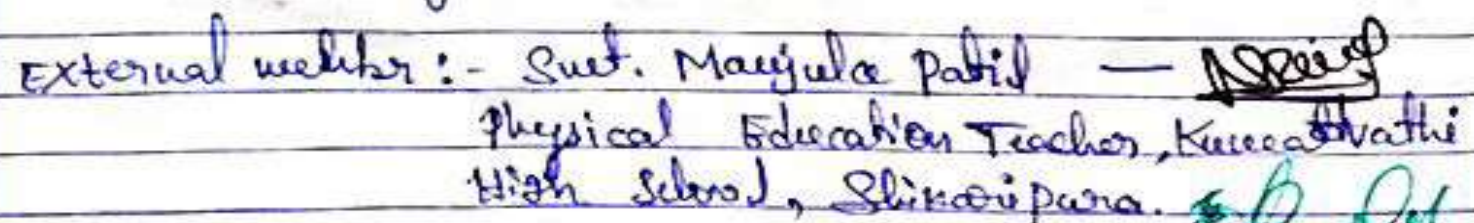 External member :- Smt. Manjula Patil —
Physical Education Teacher, Kumadvathi
High School, Shikaripura.